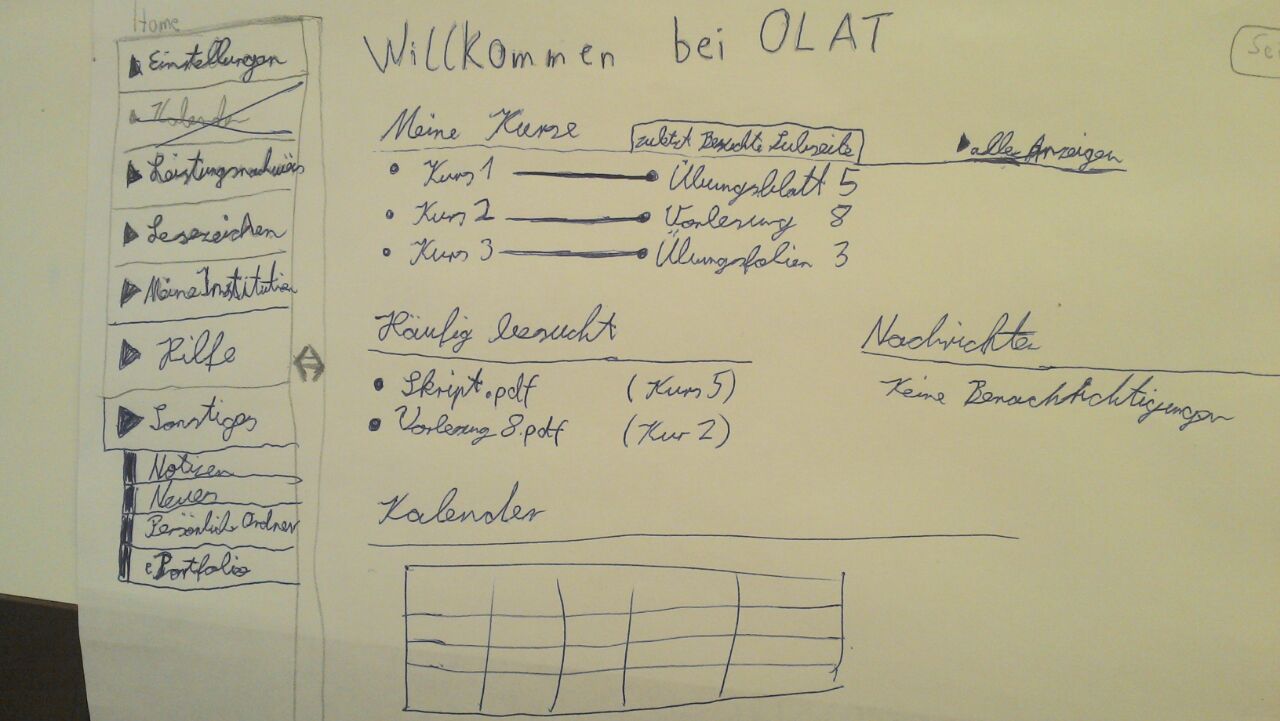 Home
Einstellungen
Kalender
Leistungsnachweis
Lesezeichen
Meine Institution
Hilfe
Sonstiges
Notizen
Neues
Persönlich. Ordner
ePortfolio
Willkommen bei OLAT
Meine Kurse zuletzt Besuchte Subseite alle Anzeigen
Kurs 1 Übungsblatt 5
Kurs 2 Vorlesung 8
Kurs 3 Übungsfolien 3
Häufig besucht
Skript.pdf (Kurs 5)
Vorlesung 8.pdf (Kur 2)
Nachrichten
Keine Benachrichtigungen
Kalender